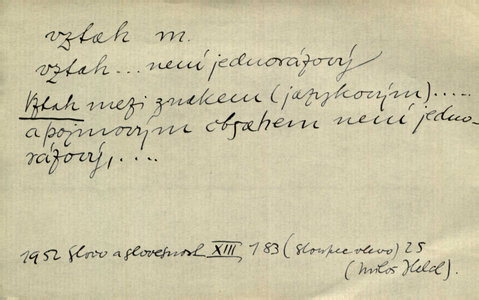 vztah m.
vztah... není jednorázový
Vztah mezi znakem (jazykovým).....
a pojmovým obsahem není jedno-
rázový,....
1952 Slovo a slovesnost XIII, 183 (sloupec vlevo) 25
(Miloš Held)